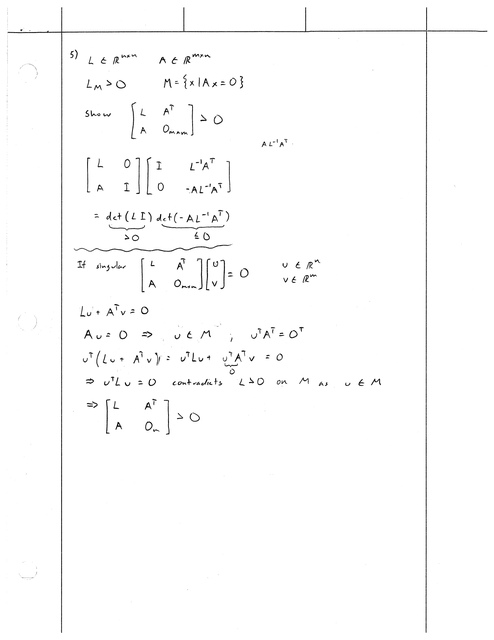 5) L ∈ ℝⁿˣⁿ A ∈ ℝᵐˣⁿ
L_M > 0 M = {x | Ax = 0}
Show [L Aᵀ; A 0ₘₓₘ] > 0
A L⁻¹ Aᵀ
[L 0; A I] [I L⁻¹Aᵀ; 0 -AL⁻¹Aᵀ]
= det(L I) det(-AL⁻¹Aᵀ)
>0 ≤0
If singular [L Aᵀ; A 0ₘₓₘ] [u; v] = 0 u ∈ ℝⁿ
v ∈ ℝᵐ
Lu + Aᵀv = 0
Au = 0 ⇒ u ∈ M , uᵀAᵀ = 0ᵀ
uᵀ(Lu + Aᵀv) = uᵀLu + uᵀAᵀv = 0
0
⇒ uᵀLu = 0 contradicts L>0 on M as u ∈ M
⇒ [L Aᵀ; A 0ₘ] > 0